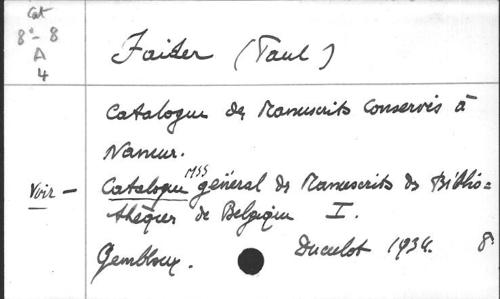 Cat
8° - 8
A
4
Faider (Paul)
Catalogue des Manuscrits conservés à
Namur.
Voir - Catalogue MSS général des Manuscrits des Biblio=
thèques de Belgique I.
Gembloux. Duculot 1934. 8°